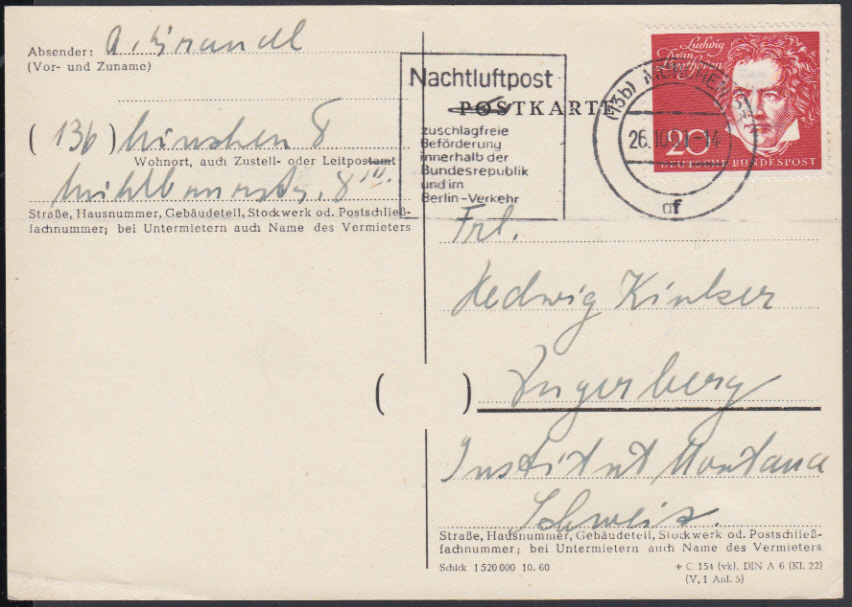 Absender: A. Grandl
(Vor- und Zuname)
(13b) München 8
Wohnort, auch Zustell- oder Leitpostamt
8 III.
Straße, Hausnummer, Gebäudeteil, Stockwerk od. Postschließ-
fachnummer; bei Untermietern auch Name des Vermieters
Nachtluftpost
zuschlagfreie
Beförderung
innerhalb der
Bundesrepublik
und im
Berlin-Verkehr
POSTKARTE
(13b) MÜNCHEN
26.10.
-14
af
Ludwig
van
Beethoven
20
DEUTSCHE BUNDESPOST
Frl.
Hedwig Kinker
( ) Zugerberg
Institut Montana
Schweiz.
Straße, Hausnummer, Gebäudeteil, Stockwerk od. Postschließ-
fachnummer; bei Untermietern auch Name des Vermieters
Schick 1 520 000 10. 60
+ C 154 (vk), DIN A 6 (Kl. 22)
(V, 1 Anl. 5)